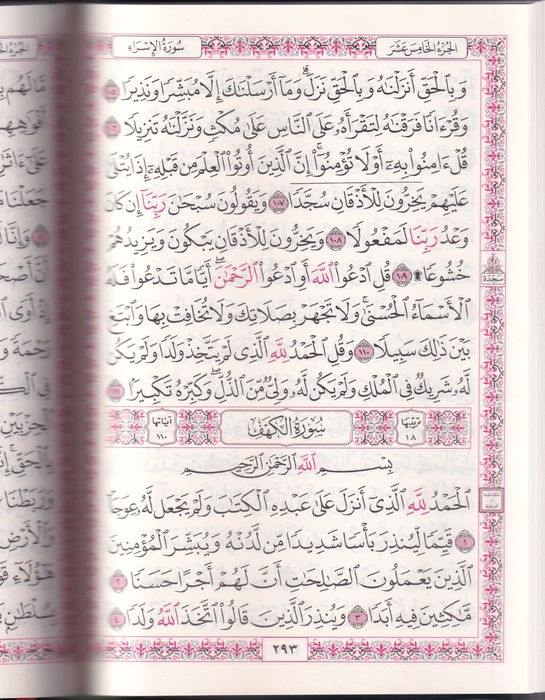 الجزء الخامس عشر
سورة الإسراء
وَبِالْحَقِّ أَنزَلْنَٰهُ وَبِالْحَقِّ نَزَلَ ۗ وَمَآ أَرْسَلْنَٰكَ إِلَّا مُبَشِّرًا وَنَذِيرًا ١٠٥
وَقُرْءَانًا فَرَقْنَٰهُ لِتَقْرَأَهُۥ عَلَى النَّاسِ عَلَىٰ مُكْثٍ وَنَزَّلْنَٰهُ تَنزِيلًا ١٠٦
قُلْ ءَامِنُوا۟ بِهِۦٓ أَوْ لَا تُؤْمِنُوٓا۟ ۚ إِنَّ الَّذِينَ أُوتُوا۟ الْعِلْمَ مِن قَبْلِهِۦٓ إِذَا يُتْلَىٰ
عَلَيْهِمْ يَخِرُّونَ لِلْأَذْقَانِ سُجَّدًا ١٠٧ وَيَقُولُونَ سُبْحَٰنَ رَبِّنَآ إِن كَانَ
وَعْدُ رَبِّنَا لَمَفْعُولًا ١٠٨ وَيَخِرُّونَ لِلْأَذْقَانِ يَبْكُونَ وَيَزِيدُهُمْ
خُشُوعًا ۩ ١٠٩ قُلِ ادْعُوا۟ اللَّهَ أَوِ ادْعُوا۟ الرَّحْمَٰنَ ۖ أَيًّا مَّا تَدْعُوا۟ فَلَهُ
الْأَسْمَآءُ الْحُسْنَىٰ ۚ وَلَا تَجْهَرْ بِصَلَاتِكَ وَلَا تُخَافِتْ بِهَا وَابْتَغِ
بَيْنَ ذَٰلِكَ سَبِيلًا ١١٠ وَقُلِ الْحَمْدُ لِلَّهِ الَّذِى لَمْ يَتَّخِذْ وَلَدًا وَلَمْ يَكُن
لَّهُۥ شَرِيكٌ فِى الْمُلْكِ وَلَمْ يَكُن لَّهُۥ وَلِىٌّ مِّنَ الذُّلِّ ۖ وَكَبِّرْهُ تَكْبِيرًا ١١١
ترتيبها ١٨
سورة الكهف
آياتها ١١٠
بِسْمِ اللَّهِ الرَّحْمَٰنِ الرَّحِيمِ
الْحَمْدُ لِلَّهِ الَّذِىٓ أَنزَلَ عَلَىٰ عَبْدِهِ الْكِتَٰبَ وَلَمْ يَجْعَل لَّهُۥ عِوَجَا
١ قَيِّمًا لِّيُنذِرَ بَأْسًا شَدِيدًا مِّن لَّدُنْهُ وَيُبَشِّرَ الْمُؤْمِنِينَ
الَّذِينَ يَعْمَلُونَ الصَّٰلِحَٰتِ أَنَّ لَهُمْ أَجْرًا حَسَنًا ٢
مَّٰكِثِينَ فِيهِ أَبَدًا ٣ وَيُنذِرَ الَّذِينَ قَالُوا۟ اتَّخَذَ اللَّهُ وَلَدًا ٤
٢٩٣
سجدة